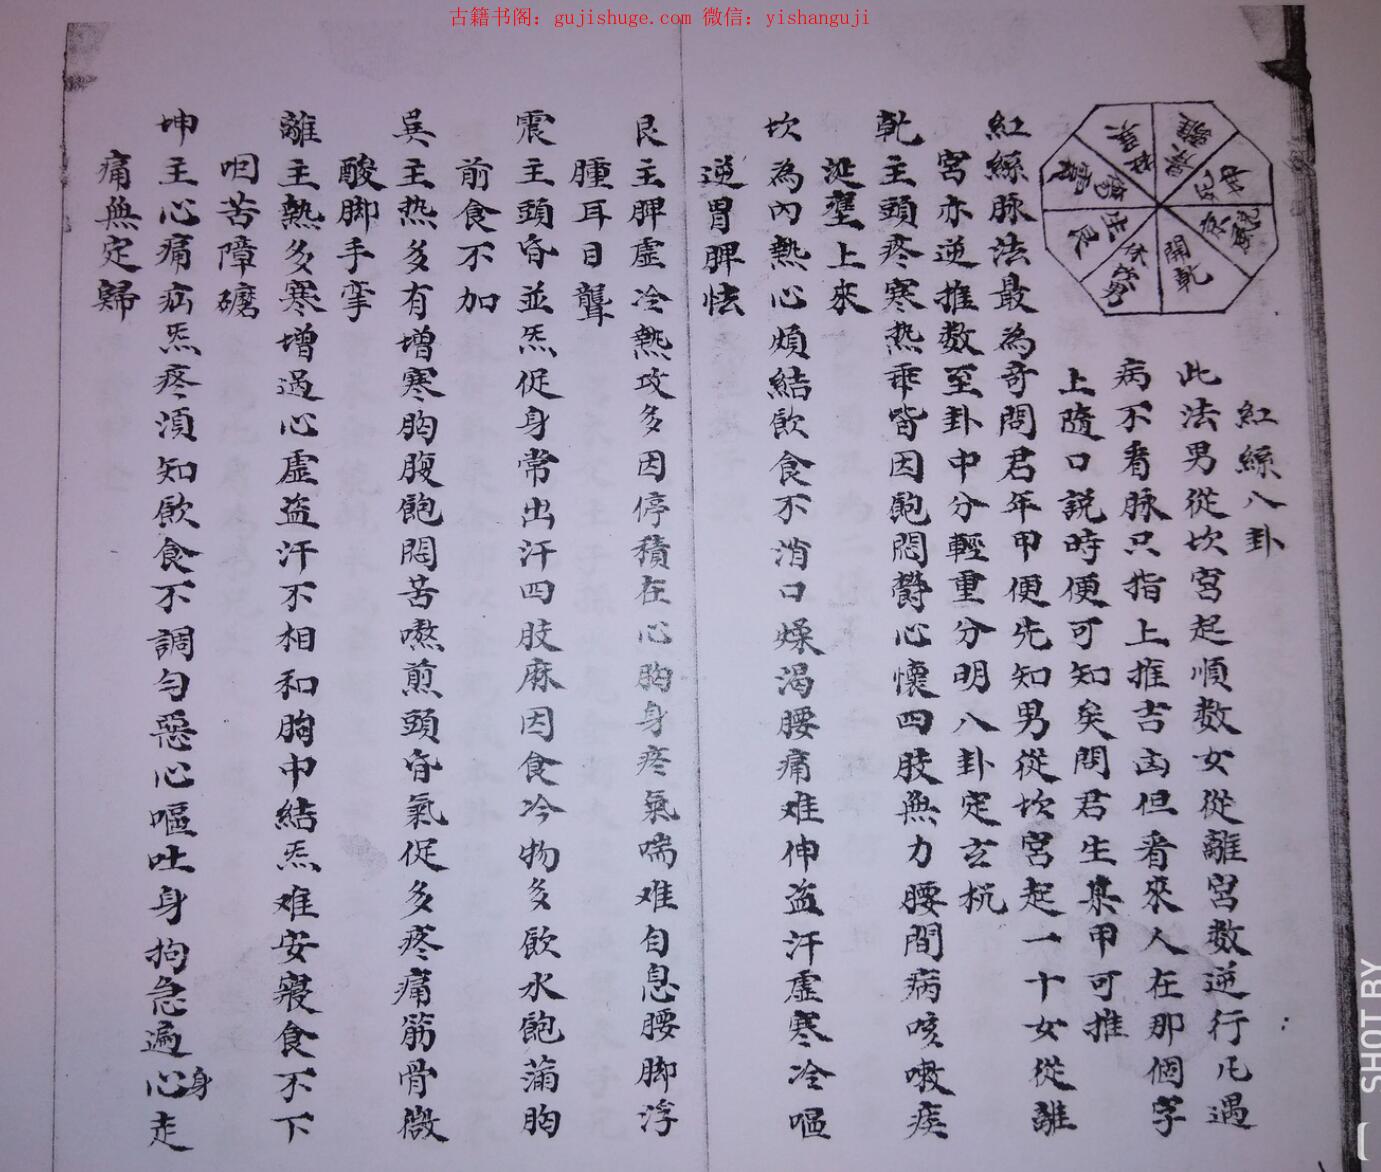 古籍书阁：gujishuge.com 微信：yishanguji
紅絲八卦
此法男從坎宮起順数女從離宮数逆行凡遇
病不看脉只指上推吉凶但看來人在那個字
上隨口説時便可知矣問君生某甲可推
紅絲脉法最為奇問君年甲便先知男從坎宮起一十女從離
宮亦逆推数至卦中分輕重分明八卦定玄杭
乾主頭疼寒热乖皆因飽悶欝心懷四肢無力腰間病咳嗽痰
涎壅上來
坎為內熱心煩結飲食不消口燥渴腰痛难伸盗汗虛寒冷嘔
逆胃脾怯
艮主脾虛冷熱攻多因停積在心胸身疼氣喘难自息腰脚浮
腫耳目聾
震主頭昏並炁促身常出汗四肢麻因食冷物多飲水飽蒲胸
前食不加
吳主热多有增寒胸腹飽悶苦嗷煎頭昏氣促多疼痛筋骨微
酸脚手挛
離主熱多寒增過心虛盗汗不相和胸中結炁难安寢食不下
咽苦障礳
坤主心痛疝炁疼湏知飲食不調勻惡心嘔吐身拘急遍心身走
痛無定歸
離
景
坤
死
兌
驚
開乾
坎
休
艮
生
震
傷
巽
杜
SHOT BY